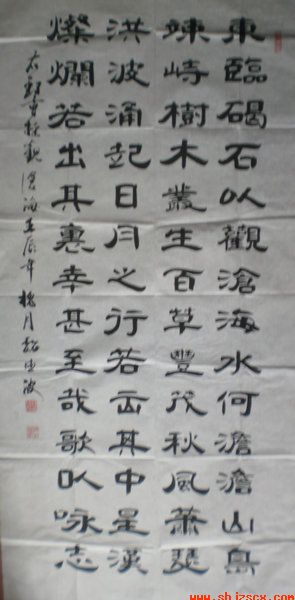 東臨碣石以觀滄海水何澹澹山島
竦峙樹木叢生百草豐茂秋風蕭瑟
洪波涌起日月之行若出其中星漢
燦爛若出其裏幸甚至哉歌以咏志
右録曹操觀滄海壬辰年 月 波
www.shizscx.com